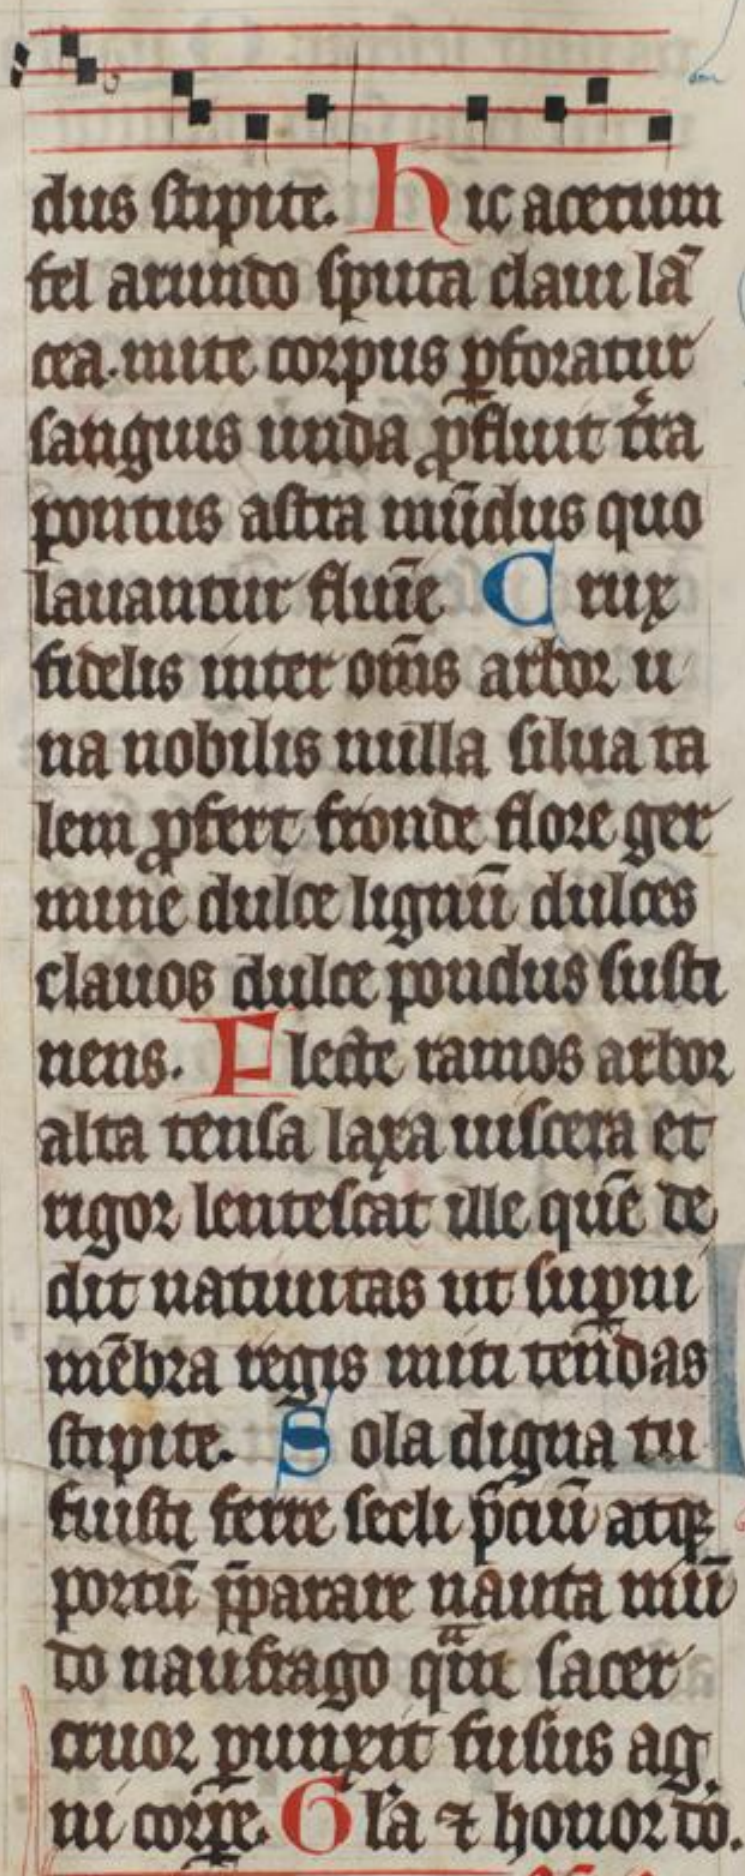 dus stipite. Hic acetum
fel arundo sputa claui lā
cea. mite corpus ꝑforatur
sanguis unda ꝓfluit tr̃a
pontus astra mūdus quo
lauantur flumīe Crux
fidelis inter om̄s arbor u
na nobilis nulla silua ta
lem ꝓfert fronde flore ger
mine dulce lignū dulces
clauos dulce pondus susti
nens. Flecte ramos arbor
alta tensa laxa uiscera et
rigor lentescat ille quē de
dit natiuitas ut suꝑni
mēbra regis miti tendas
stipite. Sola digna tu
fuisti ferre secli p̄ciū atqꝫ
portū p̄parare nauta mū
do naufrago qᵃm sacer
cruor ꝑunxit fusus ag
ni corꝑe. Gl̓a ⁊ honor dō.